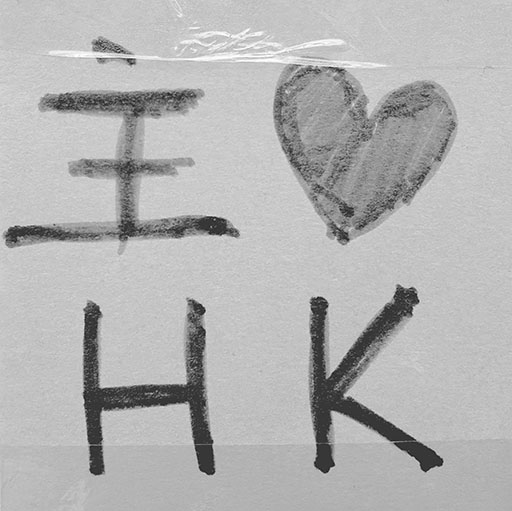 主♥
HK